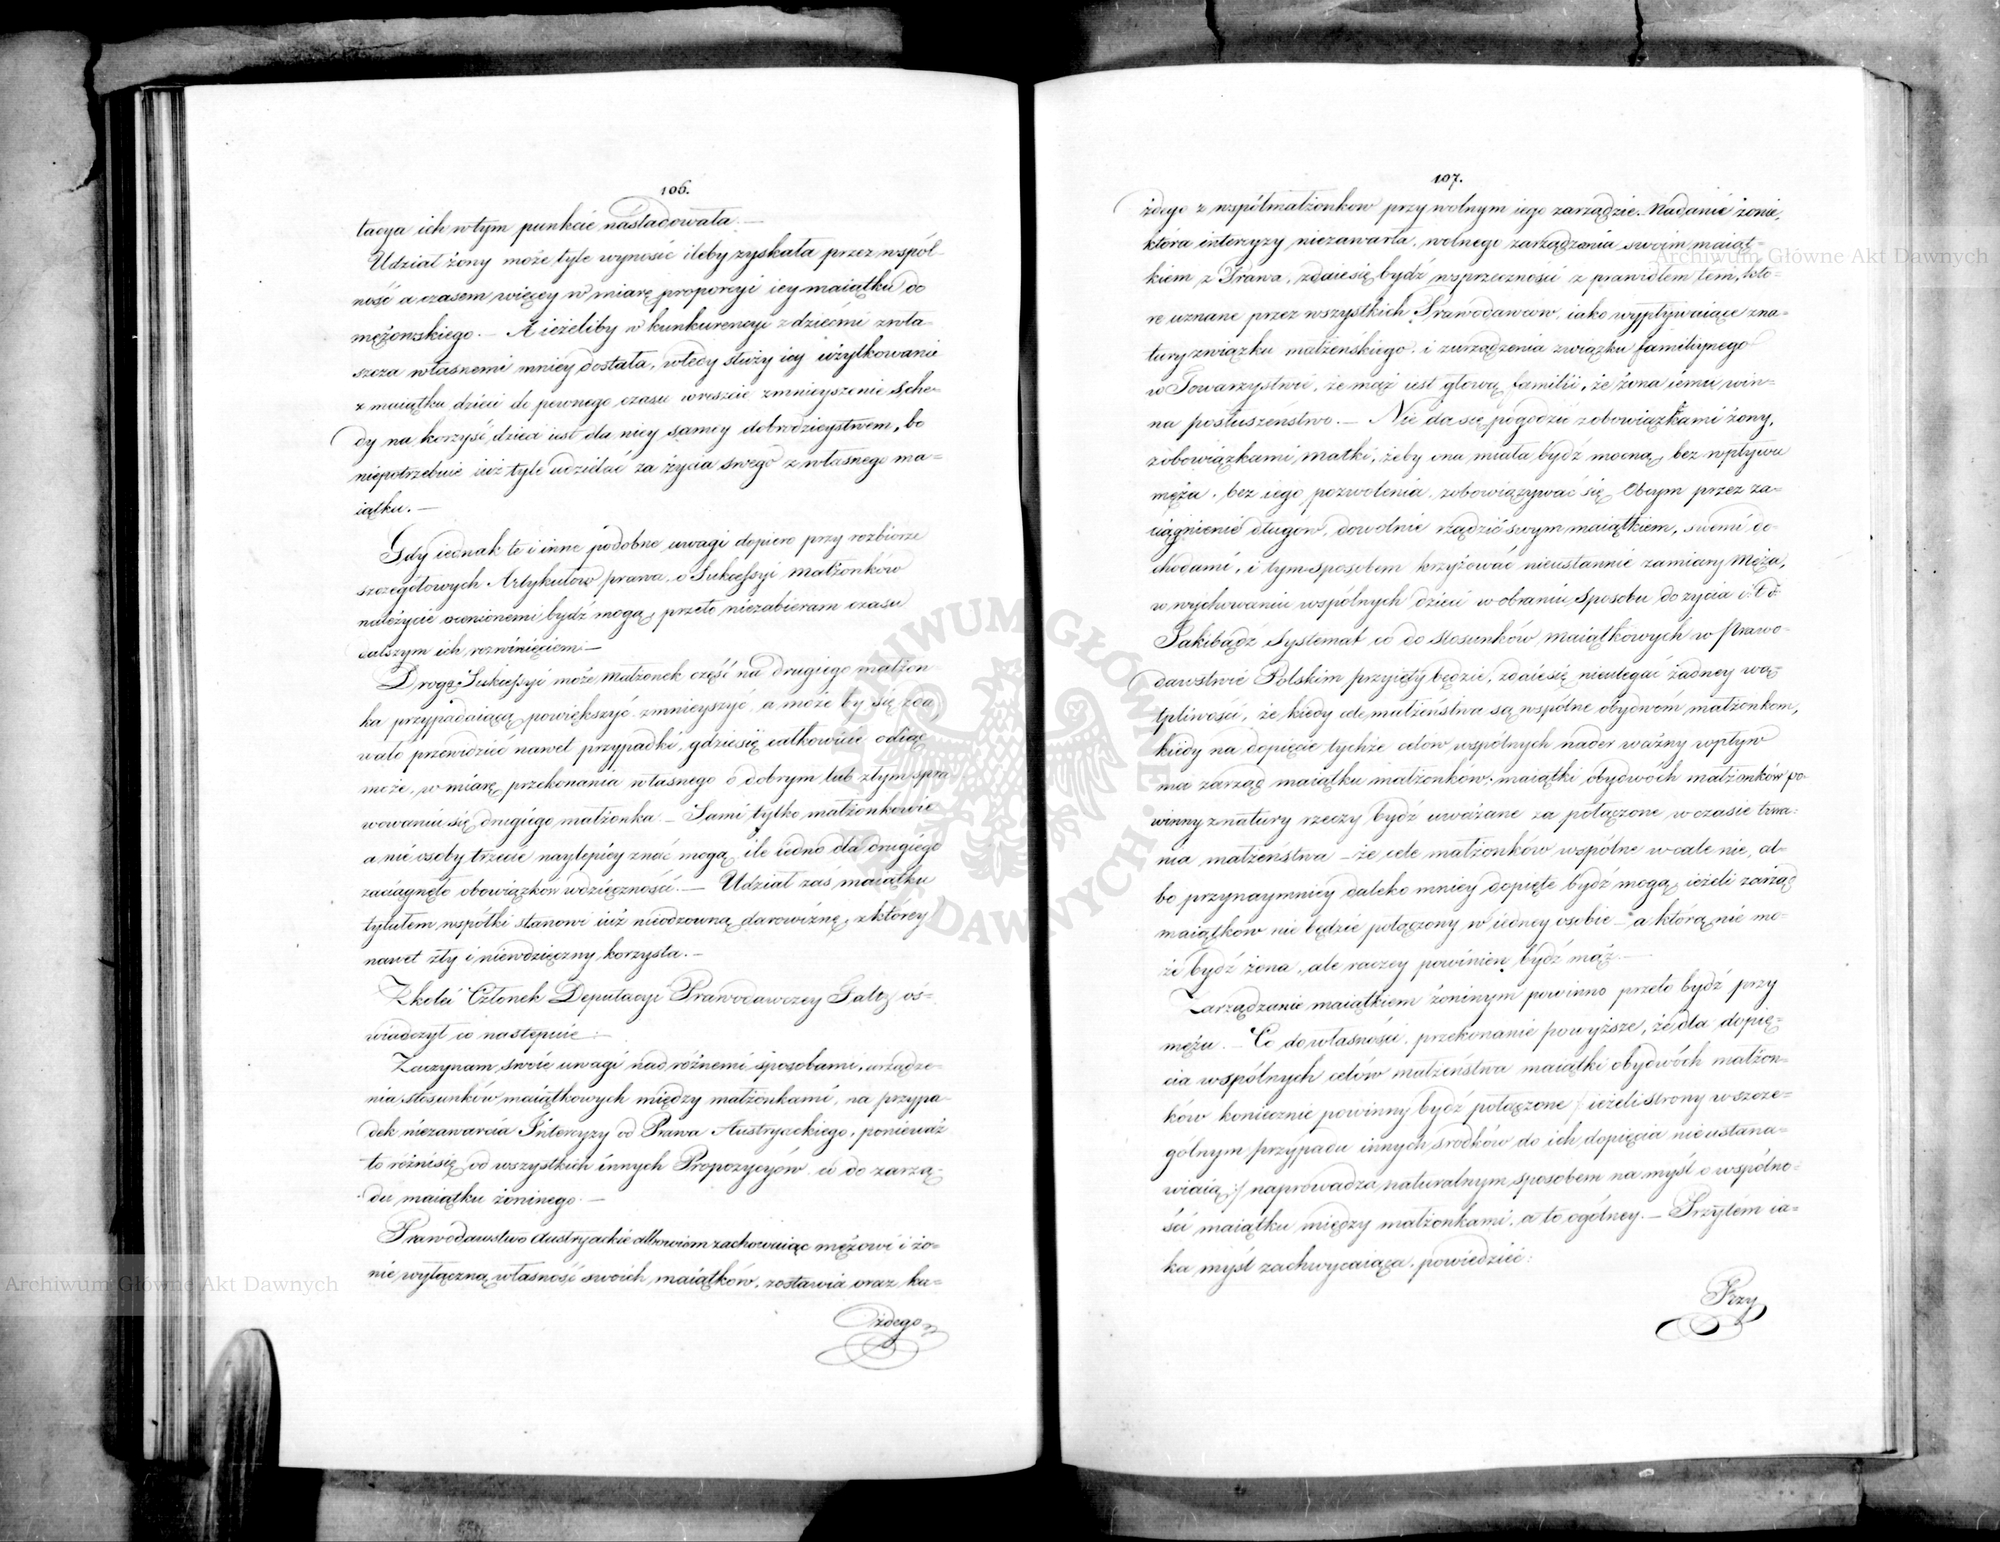 106.
tacya ich w tym punkcie naśladowała. —
Udział żony może tyle wynosić ileby zyskała przez wspól-
ność a czasem więcey w miarę proporcyi iey maiątku do
mężowskiego. — A ieżeliby w kunkurencyi z dziećmi zwła-
szcza własnemi mniey dostała, wtedy służy iey użytkowanie
z maiątku dzieci do pewnego czasu wreszcie zmnieyszenie sche-
dy na korzyść dzieci iest dla niey samey dobrodzieystwem, bo
niepotrzebuie iuż tyle udzielać za życia swego z własnego ma-
iątku. —
Gdy iednak te i inne podobne uwagi dopiero przy rozbiorze
szczegółowych Artykułów prawa o Sukcessyi małżonków
należycie ocenionemi bydź mogą, przeto niezabieram czasu
dalszym ich rozwinięciem —
Drogą Sukcessyi może małżonek część na drugiego małżon-
ka przypadaiącą powiększyć zmnieyszyć, a może by się zda-
wało przewidzieć nawet przypadki, gdzie się całkowicie odiąć
może, w miarę przekonania własnego o dobrym lub złym spra-
wowaniu się drugiego małżonka. — Sami tylko małżonkowie
a nie osoby trzecie naylepiey znać mogą ile iedno dla drugiego
zaciągnęło obowiązków wdzięczności. — Udział zaś maiątku
tytułem wspólki stanowi iuż nieodzowną darowiznę, z którey
nawet zły i niewdzięczny korzysta. —
Z kolei Członek Deputacyi Prawodawczey Faltz oś-
wiadczył co następuie:
Zaczynam swoie uwagi nad różnemi sposobami, urządze-
nia stosunków maiątkowych między małżonkami, na przypa-
dek niezawarcia Intercyzy od Prawa Austryackiego, ponieważ
to różni się od wszystkich innych Propozycyów co do zarzą-
du maiątku żoninego. —
Prawodawstwo Austryackie albowiem zachowuiąc mężowi i żo-
nie wyłączną własność swoich maiątków, zostawia oraz ka-
żdego
107.
żdego z współmałżonków przy wolnym iego zarządzie. Nadanie żonie,
która intercyzy niezawarła, wolnego zarządzania swoim maiąt-
kiem z Prawa, zdaie się bydź w sprzeczności z prawidłem tem, któ-
re uznane przez wszystkich Prawodawców, iako wypływaiące z na-
tury związku małżeńskiego i zurządzenia związku familiynego
w Towarzystwie, że mąż iest głową familii, że żona iemu win-
na posłuszeństwo. — Nie da się pogodzić z obowiązkami żony,
z obowiązkami matki, żeby ona miała bydź mocną, bez wpływu
męża, bez iego pozwolenia, zobowiązywać się Obcym przez za-
ciągnienie długów, dowolnie rządzić swym maiątkiem, swemi do-
chodami, i tym sposobem krzyżować nieustannie zamiary Męża,
w wychowaniu wspólnych dzieci w obraniu sposobu do życia i t d
Jakibądź systemat co do stosunków maiątkowych w Prawo-
dawstwie Polskim przyięty będzie, zdaie się nieulegać żadney wą-
tpliwości, że kiedy cele małżeństwa są wspólne obydwom małżonkom,
kiedy na dopięcie tychże celów wspólnych nader ważny wpływ
ma zarząd maiątku małżonków; maiątki obydwóch małżonków po-
winny z natury rzeczy bydź uważane za połączone w czasie trwa-
nia małżeństwa — że cele małżonków wspólne wcale nie, al-
bo przynaymniey daleko mniey dopięte bydź mogą, ieżeli zarząd
maiątków nie będzie połączony w iedney osobie — a którą nie mo-
że bydź żona, ale raczey powinien bydź mąż. —
Zarządzanie maiątkiem żoninym powinno przeto bydź przy
mężu. — Co do własności, przekonanie powyższe, że dla dopię-
cia wspólnych celów małżeństwa maiątki obydwóch małżon-
ków koniecznie powinny bydź połączone / ieżeli strony w szcze-
gólnym przypadu innych środków do ich dopięcia nieustana-
wiaią :/ naprowadza naturalnym sposobem na myśl o wspólno-
ści maiątku między małżonkami, a to ogólney. — Przytem ia-
ka myśl zachwycaiąca, powiedzieć:
Przy
Archiwum Główne Akt Dawnych
Archiwum Główne Akt Dawnych
ARCHIWUM GŁÓWNE AKT DAWNYCH